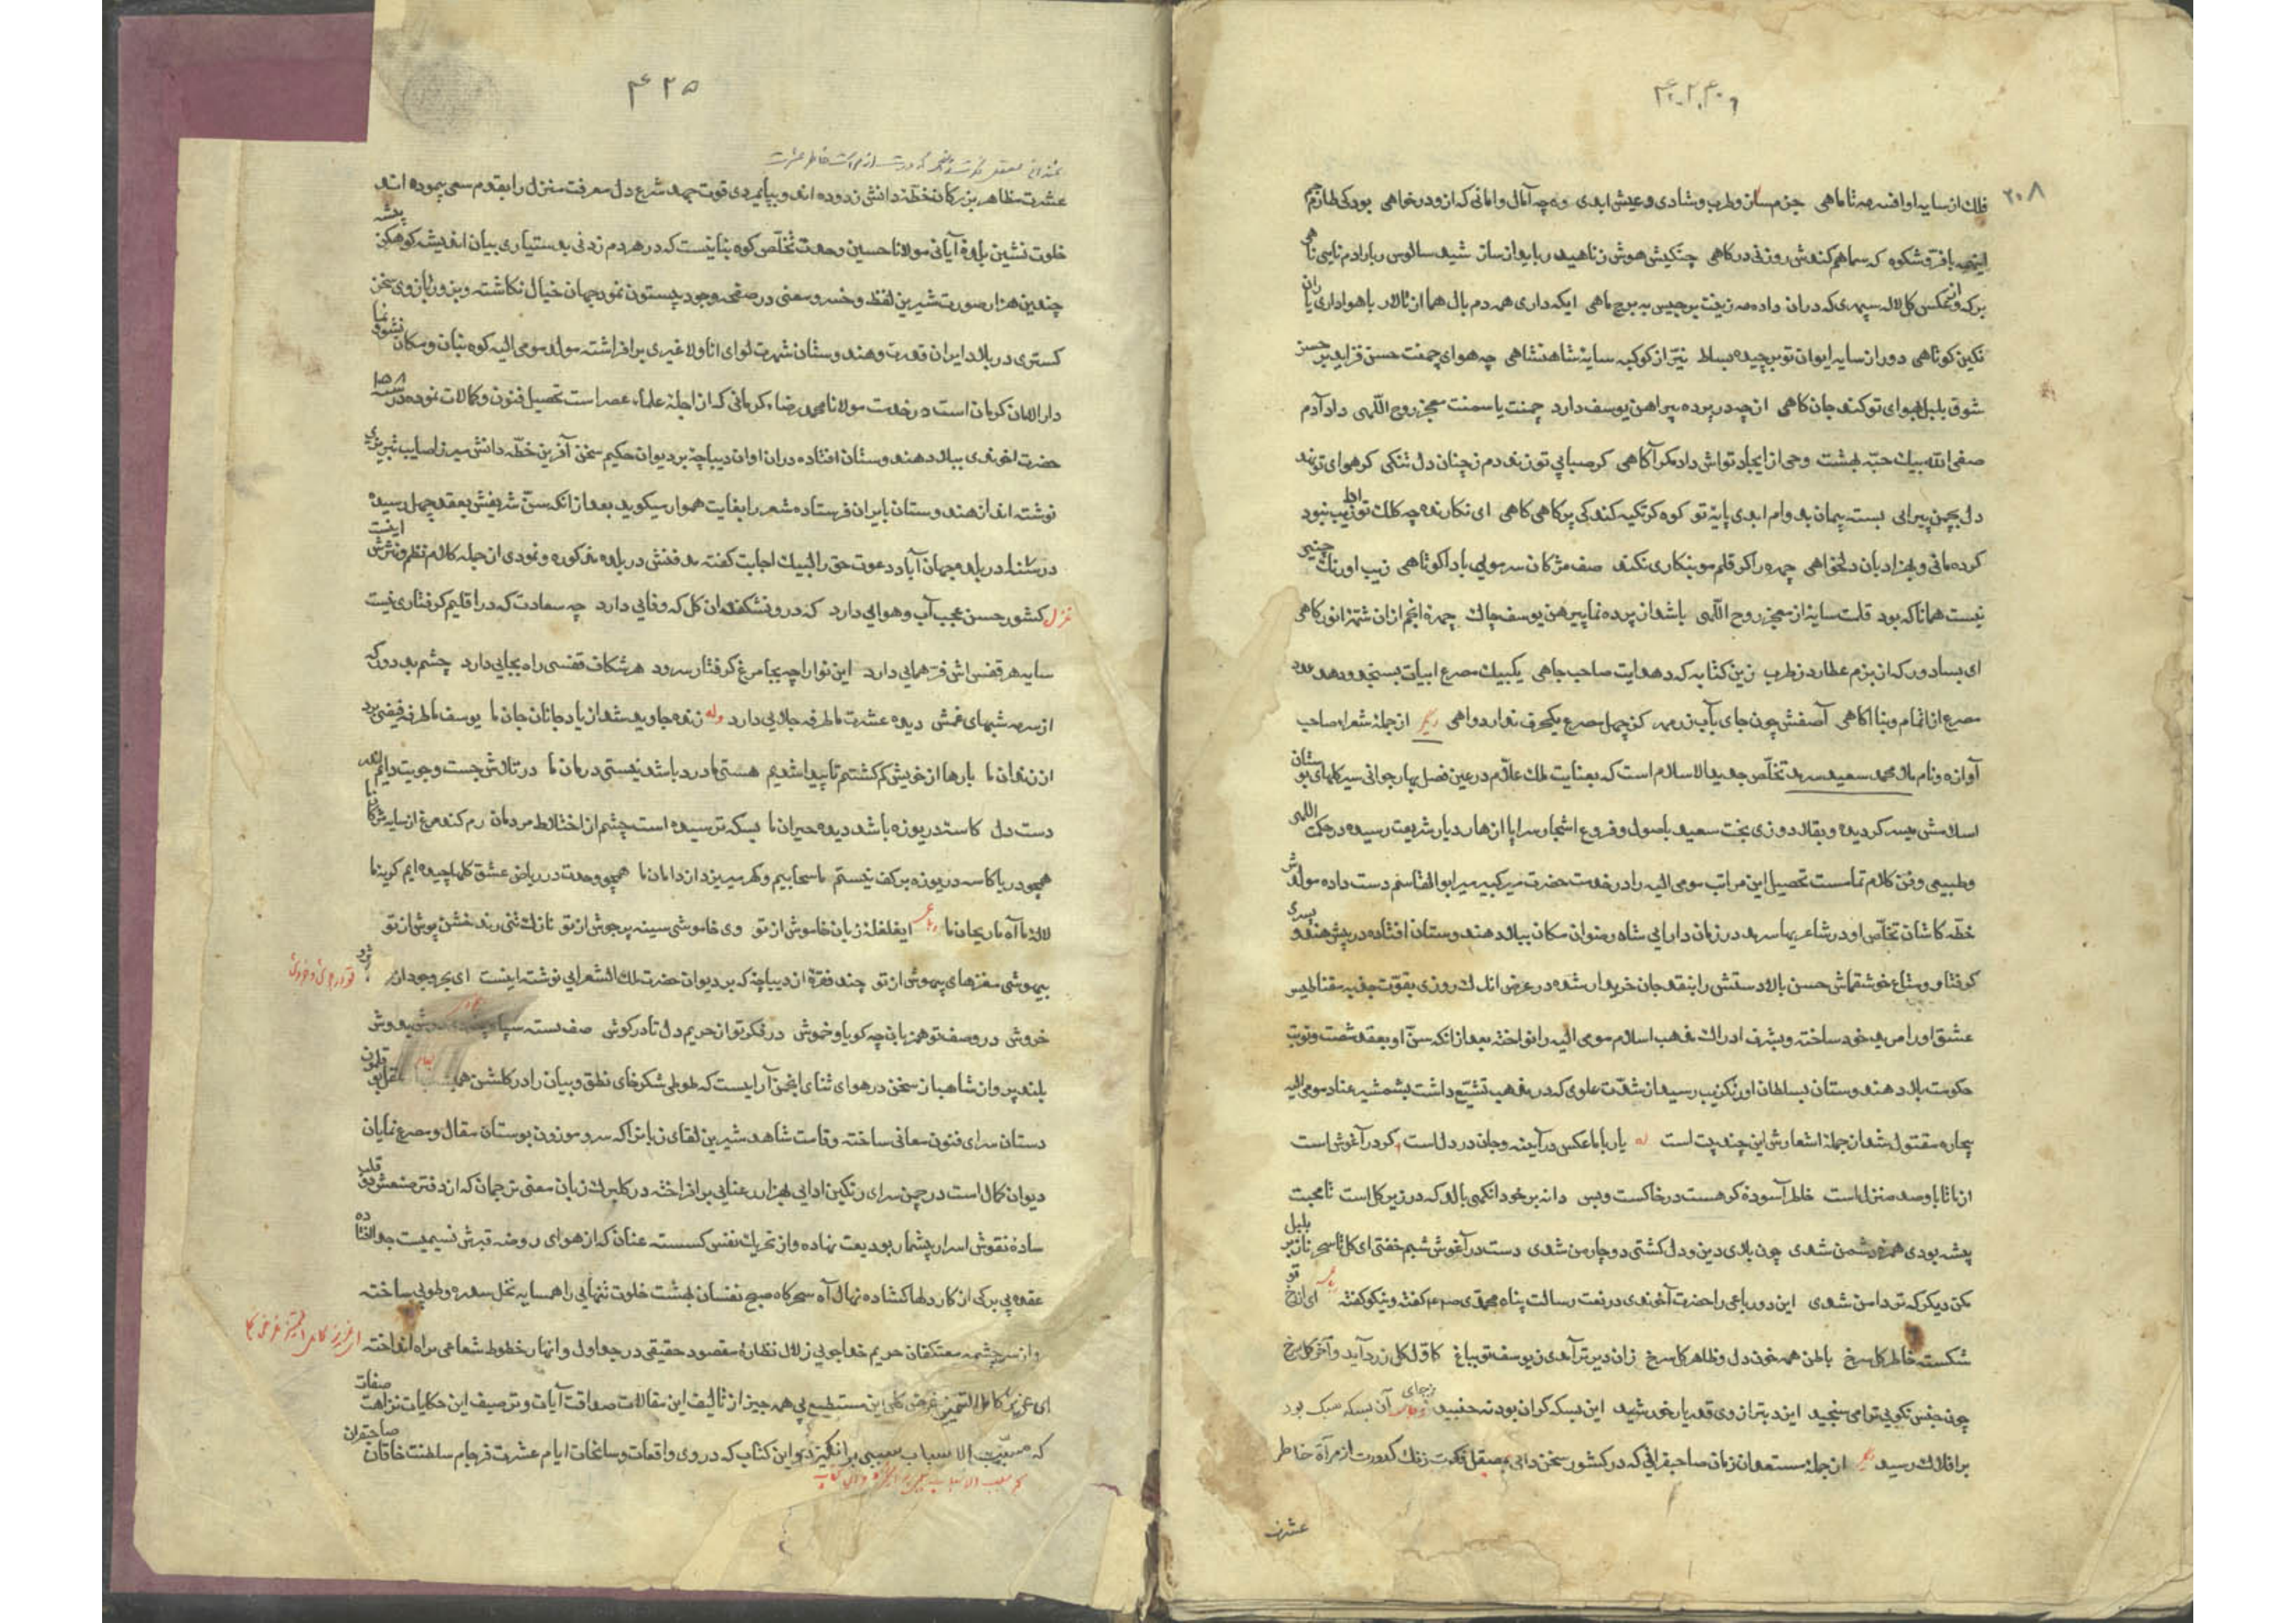 ۲۰۸
فلك از سایه او افسر مه تا ماهی جز می و طرب و شادی و عیش ابدی وه چه آمال و امانی که ازو درخواهی بود کی
با فر و شکوه که سما هم کندش روزنی درکاهی چنگیش هوش ز ناهید رباید از ساز شید سالوس ربا
برکه از عکس کل لاله سپهری که دران داده مه زینت برجیس به برج ماهی ایکه داری همه دم بال هما از تالار با هواداری
نکین کوتاهی دور از سایه ایوان تو برچیده بساط نیّر از کوکبه سایهٔ شاهنشاهی چه هوای چمنت حسن فزاید بر حسن
شوق بلبل بهوای تو کند جان کاهی از چه در پرده پیراهن یوسف دارد چمنت یا سمنت معجز روح اللهی داد آدم
صفی الله بیك حبّه بهشت وحی از ایجاد تواش داد مکر آکاهی کر صبا پی تو زند دم ز چنان دل تنکی کر هوای تو نهد
دل بچمن پیرایی بسته پیمان بدوام ابدی پایهٔ تو کوه کر تکیه کند کی پر کاهی کاهی ای نکارنده چه کلك تو
کرده مانی و بهزاد بان دلخواهی چهره را کر قلم مو بنکاری نکند صف مژکان سر مویی بادا کوتاهی زیب اورنك چنین
نیست همانا که بود قلت سایه از معجز روح اللهی باشد از پرده نما پیرهن یوسف چاك چهرهٔ انجم ازان
ای بسا دور که از بزم عطارد ز طرب زین کتابه که دهد ایت صاحب جاهی یکبیك مصرع ابیات بسنجد ودهد عدد
مصرع از اتمام و بنا آکاهی آصفش چون جای بآب زر مهر کز چهل مصرع یکحرف ندارد واهی دیکر از جملهٔ شعراء صاحب
آوازه و نام ملا محمد سعید سرمد تخلّص جدید الاسلام است که بعنایت ملك علام در عین فصل بهار جوانی سیر کلهای بوستان
اسلامش میسر کردیده و بقلاد دوزی بخت سعید باصول و فروع اشجار سراپا ازهار دیار شریعت رسیده در حکمت اللهی
و طبیعی و فن کلام تمامست تحصیل این مراتب مومی الیه را در خدمت حضرت میر کبیر میر ابوالقاسم دست داده مولدش
خطّه کاشان تخلّص او در شاعریها سرمد در زمان دارایی شاه رضوان مکان ببلاد هندوستان افتاده در پیش هندو پسری
کرفتار و متاع خوشقماش حسن بالادستش را بنقد جان خریدار شده در عرض اندك روزی بقوّت جذبه مقناطیس
عشق او را مرید خود ساخته و بشرف ادراك مذهب اسلام مومی الیه را نواخته بعد از انکه سنّ او بعقد شصت و نوبت
حکومت بلاد هندوستان بسلطان اورنکزیب رسید از شدّت علوی که در مذهب تشیّع داشت بشمشیر عناد مومی الیه
بیچاره مقتول شد از جملهٔ اشعارش این چند بیت است له یار با ما عکس در آینه و جان در دل است کر در آغوش است
از ما تا باو صد منزل است خاطر آسوده کر هست در خاکست و بس دانه بر خود انکهی بالد که در زیر کل است تا محبت
پیشه بودی همره دشمن شدی چون بلای دین و دل کشتی دوچار من شدی دست در آغوش شبنم خفتی ای کل تا سحر ناز بر بلبل
مکن دیکر که تر دامن شدی این دو رباعی را حضرت آخوندی در نعت رسالت پناه محمدی صلعم کفته و نیکو کفته ای از رخ تو
شکسته خاطر کل سرخ باطن همه خون دل و ظاهر کل سرخ زان دیر تر آمدی ز یوسف تو بباغ کاوّل کل زرد آید و آخر کل سرخ
چون جنس نکویی ترا می سنجید ایزد بترازوی قدر یا خورشید این بسکه کران بود نه جنبید ز جای آن بسکه سبک بود
بر افلاك رسید دیکر از جملهٔ مستعدان زمان صاحبقرانی که در کشور سخن دانی بصیقل فکرت زنك کدورت از مرآة خاطر
عشرت
۴۲۵
عشرت مظاهر بزرکان خطّهٔ دانش زدوده اند و بپایمردی قوت جهد شرع دل معرفت منزل را بقدم سعی پیموده اند
خلوت نشین بلدهٔ آیانی مولانا حسین وحدت تخلّص کوه بنانیست که در هر دم زدنی بدستیاری بیان اندیشه کوهکن پیشه
چندین هزار صورت شیرین لفظ و خسرو معنی در صفحه وجود بیستون نمود جهان خیال نکاشته و بزور بازوی سخن
کستری در بلاد ایران قدرت و هندوستان شهرت لوای انا ولا غیری برافراشته مولد مومی الیه کوه بنان و مکان نشو و نما
دار الامان کرمان است در خدمت مولانا محمد رضاء کرمانی که از اجلهٔ علماء عصر است تحصیل فنون و کمالات نموده در
حضرت اخوندی ببلاد هندوستان افتاده دران اوان دیباچهٔ بر دیوان حکیم سخن آفرین خطّه دانش میرزا صایب تبریزی
نوشته اند از هندوستان بایران فرستاده شعر را بغایت هموار میکوید بعد از انکه سنّ شریفش بعقد چهل رسیده
در بلده جهان آباد دعوت حق را لبیك اجابت کفته مدفنش در بلده مذکوره و نمودی از جمله کلام نظم و نثرش اینست
غزل کشور حسن عجب آب و هوایی دارد که درو نشکفد ان کل که وفایی دارد چه سعادت که در اقلیم کرفتاری نیست
سایه هر قفس اش فرّ همایی دارد این نوا را چه بجا مرغ کرفتار سرود هر شکاف قفسی راه بجایی دارد چشم بد دور که
از سرمه شبهای غمش دیده عشرت ما طرفه جلایی دارد وله زنده جاوید شد از یاد جانان جان ما یوسف ما طرفه فیضی برد
از زندان ما بارها از خویش کم کشتیم تا پیدا شدیم هستی ما درد باشد نیستی درمان ما در تلاش جست و جویت دایم
دست دل کاسهٔ دریوزه باشد دیده حیران ما بسکه ترسیده است چشم از اختلاط مردمان رم کند مرغ از سایه
همچو دریا کاسه دریوزه بر کف نیستم ما سحابیم و کهر میریزد از دامان ما همچو وحدت در ریاض عشق کلها چیده ایم
لالهٔ ما آه ما ریحان ما رباعی ای غلغلهٔ زبان خاموش از تو وی خاموشی سینه پرجوش از تو نازك تنی رند خشن پوش از تو
بیهوشی مغزهای بیهوش از تو چند فقرهٔ از دیباچه که بر دیوان حضرت ملك الشعرایی نوشته اینست ای بحر وجود از تو
خروش در وصف تو همزبان چه کویا و خموش در فکر تو از حریم دل تا در کوش صف بسته
بلند پروازن شاهباز سخن در هوای ثنای انجمن آرایست که طوطی شکرخای نطق و بیان را در کلشن
دستان سرای فنون معانی ساخته و قامت شاهد شیرین لقای زبانرا که سرو موزون بوستان مقال و مصرع نمایان
دیوان کمال است در چمن سرای رنکین ادایی بهزار رعنایی برافراخته در کلبرك زبان معنی ترجمان که از دفتر
سادهٔ نقوش اسرار بیشمار بودیعت نهاده و از تحریك نفس کسسته عنان که از هوای روضه قبرش نسیمیست
عقده پی برکی از کار دلها کشاده نهال آه سحر کاه صبح نفسان بهشت خلوت تنهایی را همسایه نخل سدره و طوبی ساخته
و از سرچشمه معتکفان حریم خداجویی زلال نظارهٔ مقصود حقیقی در جداول و انهار خطوط شعاعی براه انداخته
ای عزیز کامل التمیز غرض کلی این مستطیع بی همه چیز از تالیف این مقالات صداقت آیات و ترصیف این حکایات نزاهت صفات
که مسبّب الاسباب سببی برانکیزد و این کتاب که در وی واقعات و سانحات ایام عشرت فرجام سلطنت خاقان صاحبقران